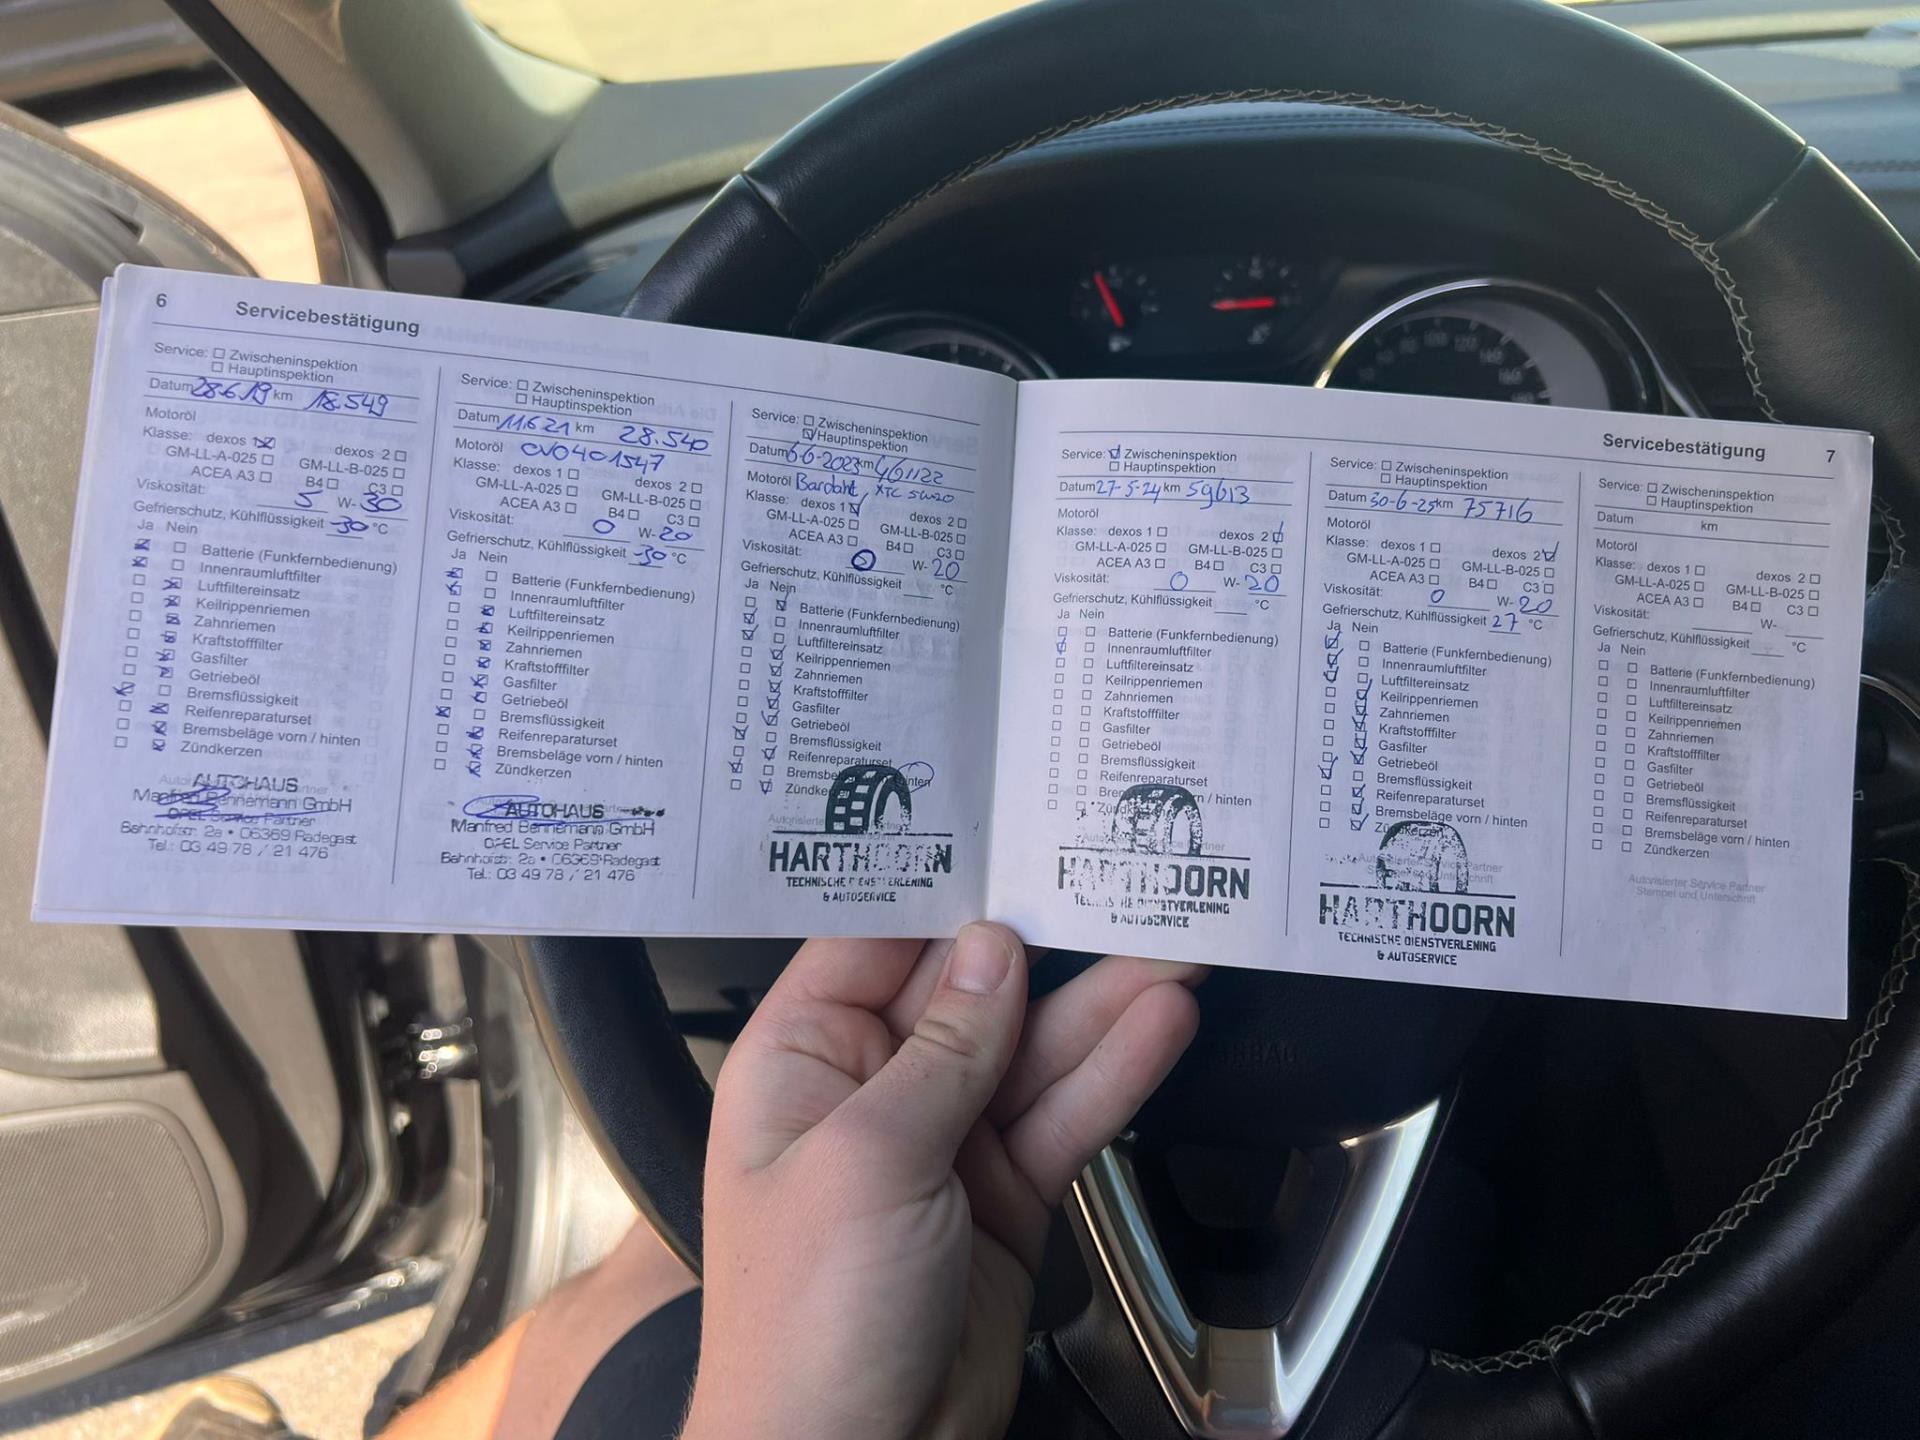 6 Servicebestätigung
Service: Zwischeninspektion
Hauptinspektion
Datum 28.6.19 km 18.549
Motoröl
Klasse: dexos 1 dexos 2
GM-LL-A-025 GM-LL-B-025
ACEA A3 B4 C3
Viskosität: 5 W- 30
Gefrierschutz, Kühlflüssigkeit -30 °C
Ja Nein
Batterie (Funkfernbedienung)
Innenraumluftfilter
Luftfiltereinsatz
Keilrippenriemen
Zahnriemen
Kraftstofffilter
Gasfilter
Getriebeöl
Bremsflüssigkeit
Reifenreparaturset
Bremsbeläge vorn / hinten
Zündkerzen
AUTOHAUS
Manfred Bennemann GmbH
OPEL Service Partner
Bahnhofstr. 2a • 06369 Radegast
Tel.: 03 49 78 / 21 476
Service: Zwischeninspektion
Hauptinspektion
Datum 11.6.21 km 28.540
Motoröl OV0401547
Klasse: dexos 1 dexos 2
GM-LL-A-025 GM-LL-B-025
ACEA A3 B4 C3
Viskosität: 0 W- 20
Gefrierschutz, Kühlflüssigkeit -30 °C
Ja Nein
Batterie (Funkfernbedienung)
Innenraumluftfilter
Luftfiltereinsatz
Keilrippenriemen
Zahnriemen
Kraftstofffilter
Gasfilter
Getriebeöl
Bremsflüssigkeit
Reifenreparaturset
Bremsbeläge vorn / hinten
Zündkerzen
AUTOHAUS
Manfred Bennemann GmbH
OPEL Service Partner
Bahnhofstr. 2a • 06369 Radegast
Tel.: 03 49 78 / 21 476
Service: Zwischeninspektion
Hauptinspektion
Datum 6-6-2023 km 46122
Motoröl Bardahl XTC 5W20
Klasse: dexos 1 dexos 2
GM-LL-A-025 GM-LL-B-025
ACEA A3 B4 C3
Viskosität: 0 W- 20
Gefrierschutz, Kühlflüssigkeit °C
Ja Nein
Batterie (Funkfernbedienung)
Innenraumluftfilter
Luftfiltereinsatz
Keilrippenriemen
Zahnriemen
Kraftstofffilter
Gasfilter
Getriebeöl
Bremsflüssigkeit
Reifenreparaturset
HARTHOORN
TECHNISCHE DIENSTVERLENING
& AUTOSERVICE
Servicebestätigung 7
Service: Zwischeninspektion
Hauptinspektion
Datum 27-5-24 km 59613
Motoröl
Klasse: dexos 1 dexos 2
GM-LL-A-025 GM-LL-B-025
ACEA A3 B4 C3
Viskosität: 0 W- 20
Gefrierschutz, Kühlflüssigkeit °C
Ja Nein
Batterie (Funkfernbedienung)
Innenraumluftfilter
Luftfiltereinsatz
Keilrippenriemen
Zahnriemen
Kraftstofffilter
Gasfilter
Getriebeöl
Bremsflüssigkeit
Reifenreparaturset
HARTHOORN
TECHNISCHE DIENSTVERLENING
& AUTOSERVICE
Service: Zwischeninspektion
Hauptinspektion
Datum 30-6-25 km 75716
Motoröl
Klasse: dexos 1 dexos 2
GM-LL-A-025 GM-LL-B-025
ACEA A3 B4 C3
Viskosität: 0 W- 20
Gefrierschutz, Kühlflüssigkeit 27 °C
Ja Nein
Batterie (Funkfernbedienung)
Innenraumluftfilter
Luftfiltereinsatz
Keilrippenriemen
Zahnriemen
Kraftstofffilter
Gasfilter
Getriebeöl
Bremsflüssigkeit
Reifenreparaturset
Bremsbeläge vorn / hinten
Zündkerzen
HARTHOORN
TECHNISCHE DIENSTVERLENING
& AUTOSERVICE
Service: Zwischeninspektion
Hauptinspektion
Datum km
Motoröl
Klasse: dexos 1 dexos 2
GM-LL-A-025 GM-LL-B-025
ACEA A3 B4 C3
Viskosität: W-
Gefrierschutz, Kühlflüssigkeit °C
Ja Nein
Batterie (Funkfernbedienung)
Innenraumluftfilter
Luftfiltereinsatz
Keilrippenriemen
Zahnriemen
Kraftstofffilter
Gasfilter
Getriebeöl
Bremsflüssigkeit
Reifenreparaturset
Bremsbeläge vorn / hinten
Zündkerzen
Autorisierter Service Partner
Stempel und Unterschrift